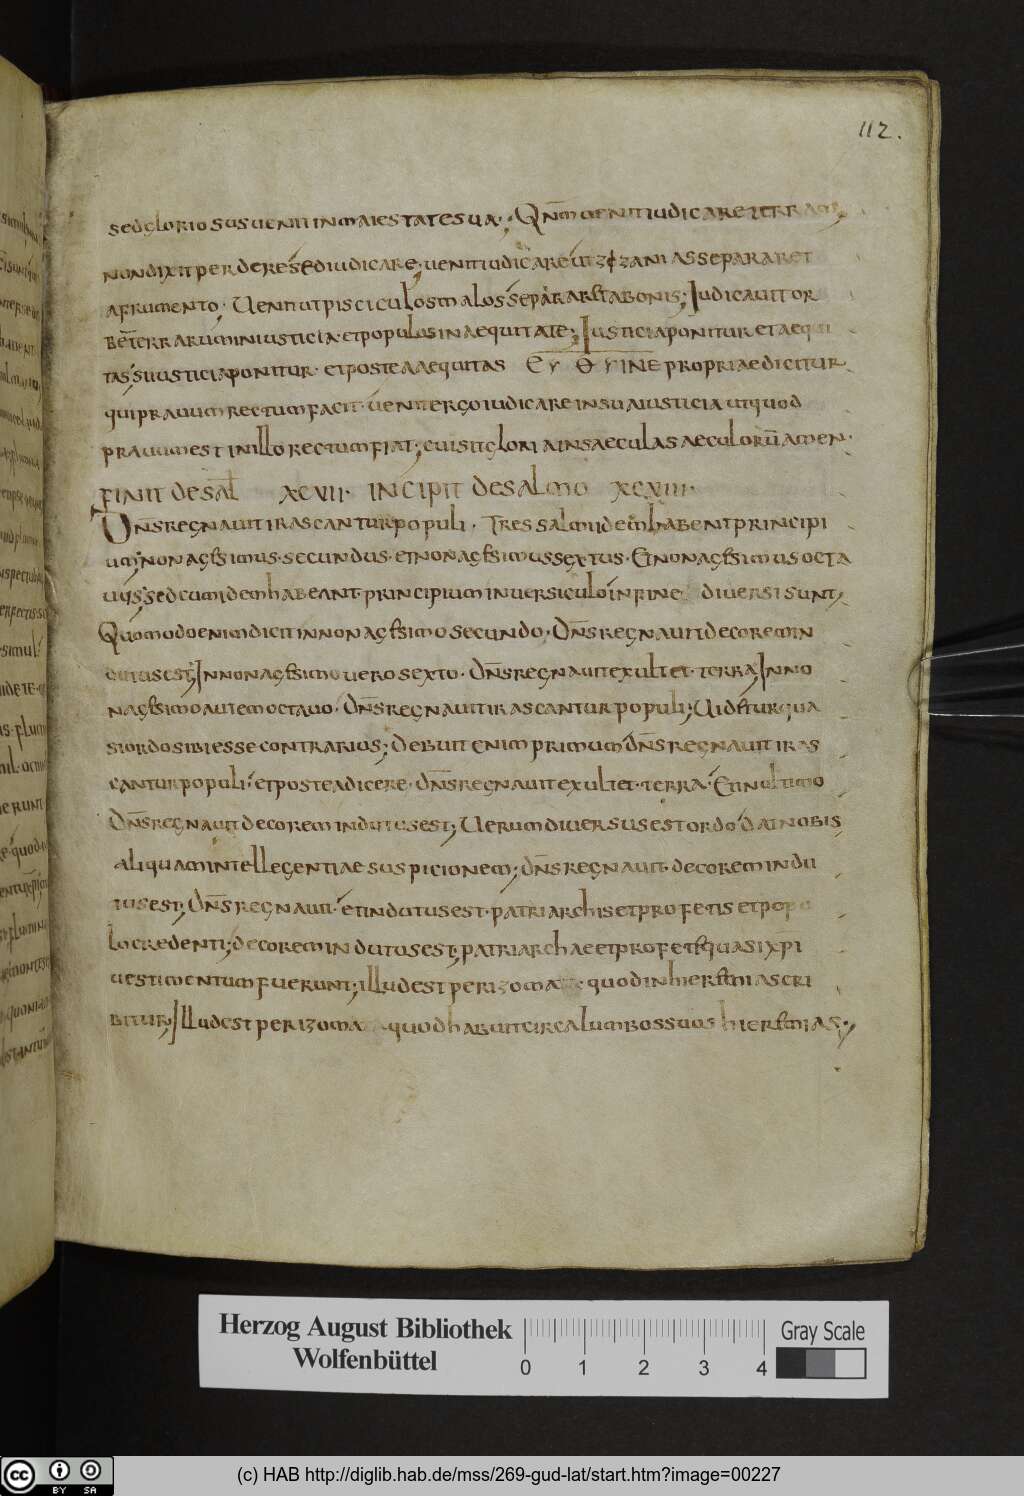 112.
sed gloriosus uenit in maiestate sua·; Qnm̄ uenit iudicare terram;
non dixit perdere sed iudicare; uenit iudicare ut zizania separaret
a frumento; Uenit ut pisciculos malos separaret a bonis; Iudicauit or
bē terrarum in iusticia· et populos in aequitate; Iusticia ponitur et aequi
tas; si iusticia ponitur· et postea aequitas ponitur proprie dicitur
qui prauum rectum facit· uenit ergo iudicare in sua iusticia ut quod
prauum est in illo rectum fiat; cui sit gloria in saecula saeculorū amen·
FINIT DE SAL̄ XCVII· INCIPIT DE SALMO XCVIII·
Dn̄s regnauit irascantur populi· Tres salmi idem habent principi
um; nonagesimus secundus· et nonagesimus sextus· Et nonagesimus octa
uus; sed cum idem habeant principium in uersiculo in fine diuersi sunt;
Quomodo enim dicit in nonagesimo secundo; Dn̄s regnauit decorem in
dutus est; In nonagesimo uero sexto· Dn̄s regnauit exultet terra; In no
nagesimo autem octauo· Dn̄s regnauit irascantur populi; Uidetur qua
si ordo sibi esse contrarius; Debuit enim primum dn̄s regnauit iras
cantur populi· et postea dicere· dn̄s regnauit exultet terra· Et in ultimo
Dn̄s regnauit decorem indutus est; Uerum diuersus est ordo· dat nobis
aliquam intellegentiae suspicionem; dn̄s regnauit· decorem indu
tus est; Dn̄s regnauit· et indutus est· patriarchis et profetis et popu
lo credenti; decorem indutus est; patriarchae et profetae quasi xp̄i
uestimentum fuerunt; illud est perizoma quod in hieremia scri
bitur; Illud est perizoma quod habuit circa lumbos suos hieremias·;
Herzog August Bibliothek
Wolfenbüttel
0 1 2 3 4
Gray Scale
cc BY SA
(c) HAB http://diglib.hab.de/mss/269-gud-lat/start.htm?image=00227